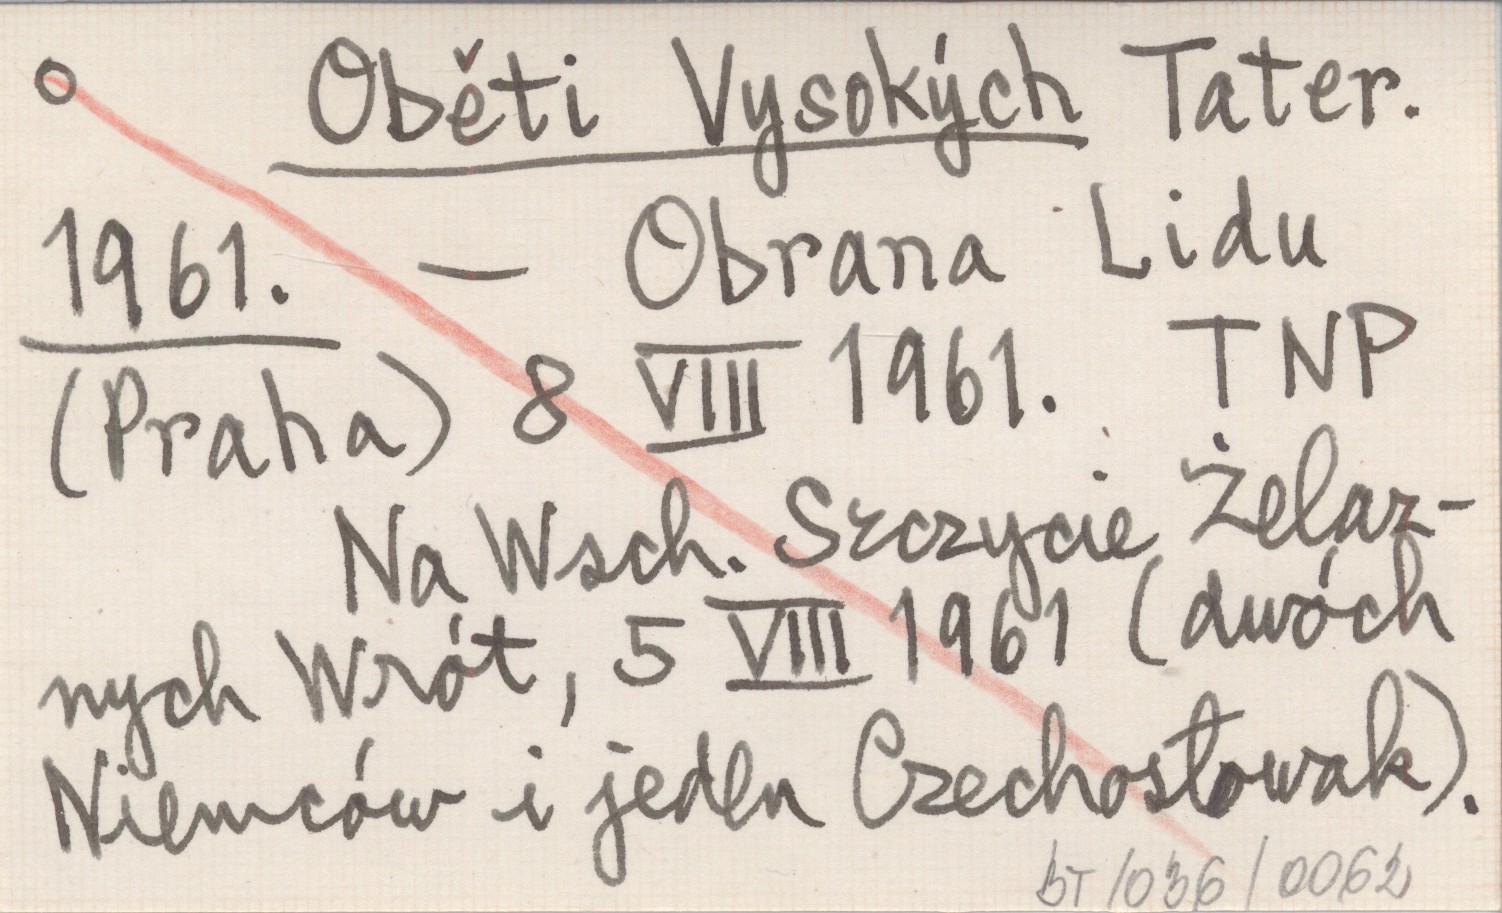 Oběti Vysokých Tater.
1961. — Obrana Lidu
(Praha) 8 VIII 1961. TNP
Na Wsch. Szczycie Żelaz-
nych Wrót, 5 VIII 1961 (dwóch
Niemców i jeden Czechosłowak).
BT/036/0062